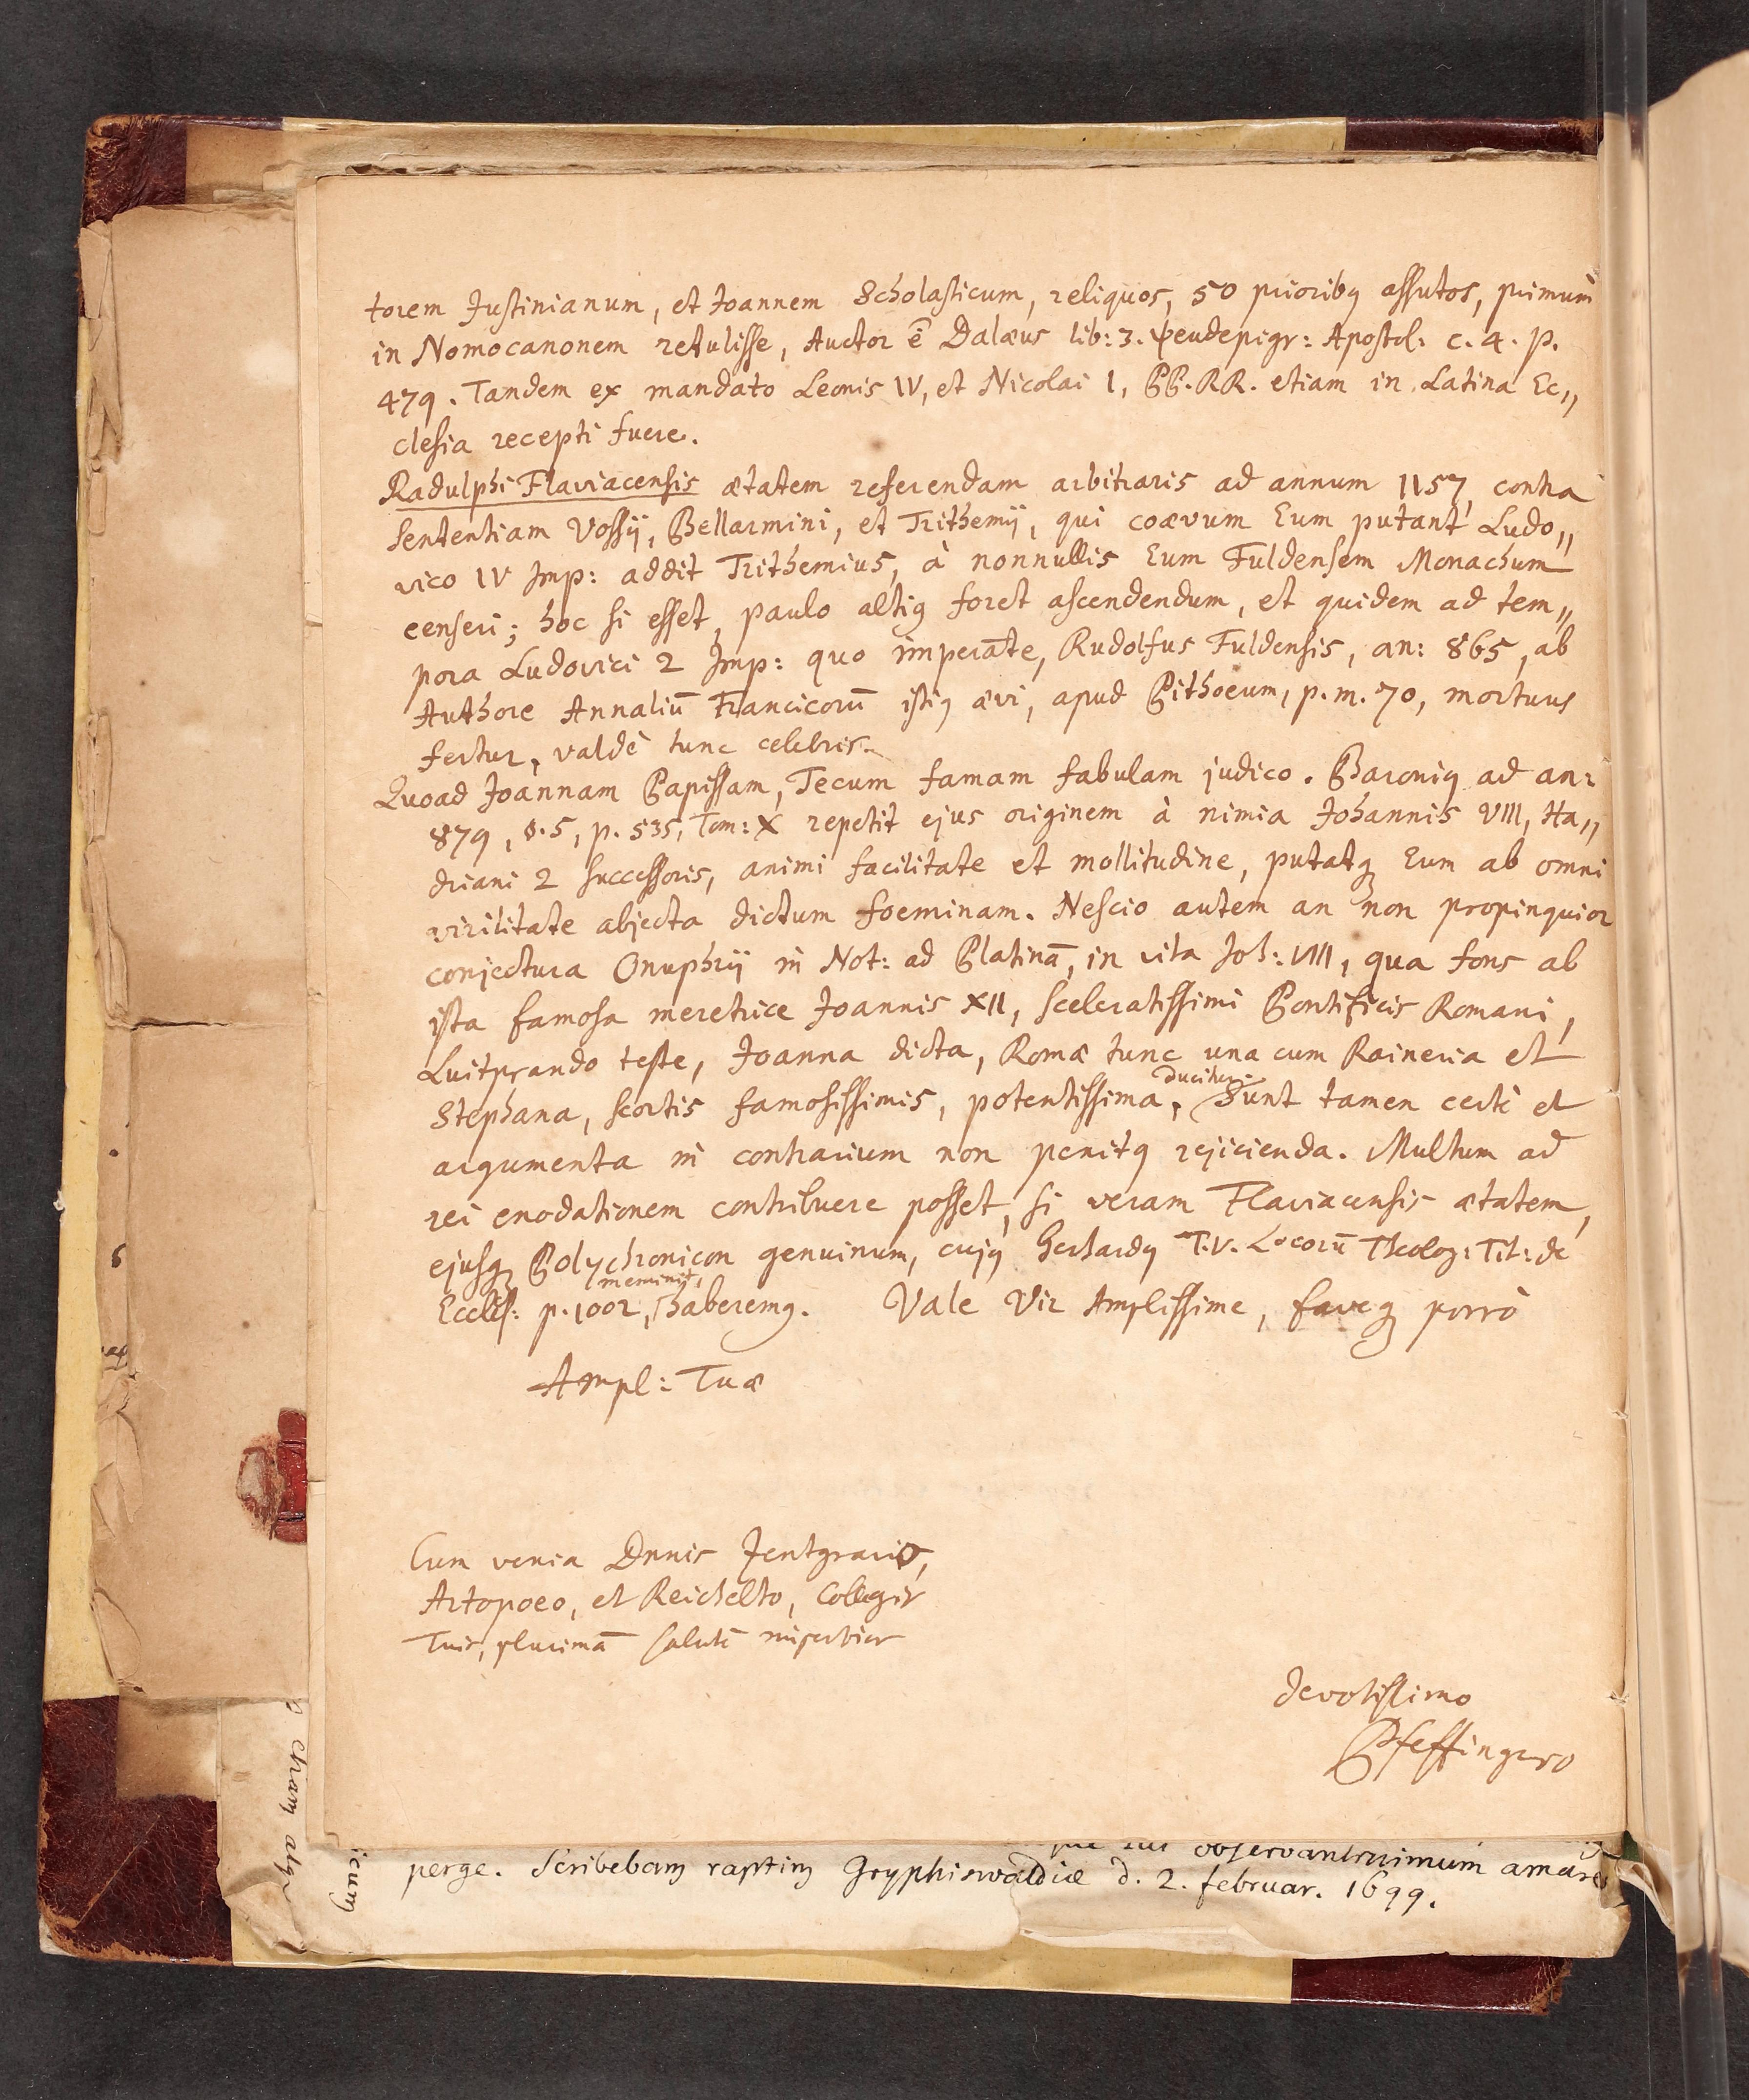 torem Justinianum, et Joannem Scholasticum, reliquos, 50 prioribꝯ assutos, primum
in Nomocanonem retulisse, Auctor ē Dalæus lib: 3. ψeudepigr: Apostol. c. 4. p.
479. Tandem ex mandato Leonis IV, et Nicolai I, PP. RR. etiam in Latina Ec„
clesia recepti fuere.
Radulphi Flaviacensis ætatem referendam arbitraris ad annum 1157, contra
sententiam Vossij, Bellarmini, et Trithemij, qui coævum Eum putant Ludo„
vico IV Imp: addit Trithemius, à nonnullis Eum Fuldensem Monachum
censeri; hoc si esset, paulo altiꝯ foret ascendendum, et quidem ad tem„
pora Ludovici 2 Imp: quo imperāte, Rudolfus Fuldensis, an: 865, ab
Authore Annaliū Francicorū istiꝯ ævi, apud Pithoeum, p. m. 70, mortuus
fertur, valdè tunc celebris.
Quoad Joannam Papissam, Tecum famam fabulam judico. Baroniꝯ ad an:
879, §. 5, p. 535, Tom: X repetit ejus originem à nimia Johannis VIII, Ha„
driani 2 successoris, animi facilitate et mollitudine, putatqꝫ Eum ab omni
virilitate abjecta dictum foeminam. Nescio autem an non propinquior
conjectura Onuphrij in Not: ad Platinā, in vita Joh: VIII, qua fons ab
ista famosa meretrice Joannis XII, sceleratissimi Pontificis Romani,
Luitprando teste, Joanna dicta, Romæ tunc una cum Raineria et
Stephana, scortis famosissimis, potentissima, ducitur. Sunt tamen certè et
argumenta in contrarium non penitꝯ rejicienda. Multum ad
rei enodationem contribuere posset, si veram Flaviacensis ætatem,
ejusqꝫ Polychronicon genuinum, cujꝯ Gerhardꝯ T. V. Locorū Theolog: Tit: de
Eccles: p. 1002, meminit, haberemꝯ. Vale Vir Amplissime, faveqꝫ porrò
Ampl: Tuæ
Cum venia Dnnis Jentgravio,
Artopoeo, et Reichelto, Collegis
Tuis, plurimā salutē
devotissimo
Pfeffingero
observantissimum amare
perge. Scribebam raptim Gryphiswaldiæ d. 2. februar. 1699.